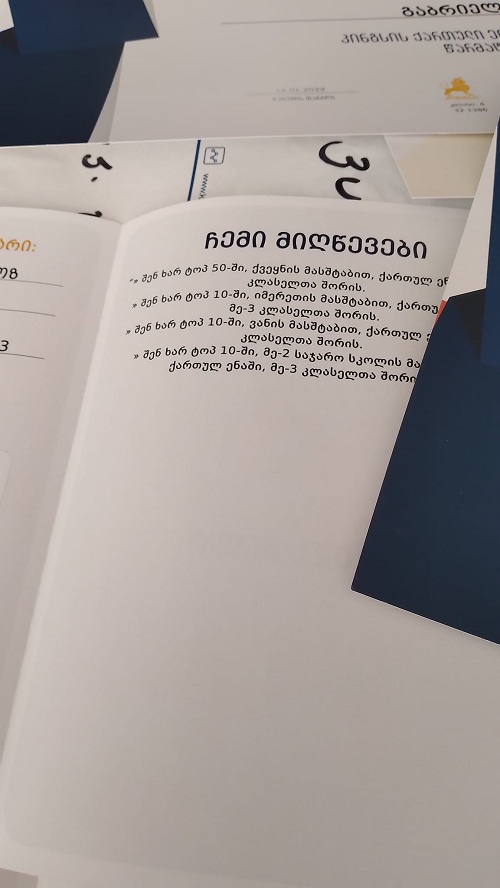 გაბრიელ
კინგსის ქართული
წარმატ
ჩემი მიღწევები
» შენ ხარ ტოპ 50-ში, ქვეყნის მასშტაბით, ქართულ
კლასელთა შორის.
» შენ ხარ ტოპ 10-ში, იმერეთის მასშტაბით, ქართუ
მე-3 კლასელთა შორის.
» შენ ხარ ტოპ 10-ში, ვანის მასშტაბით, ქართულ
კლასელთა შორის.
» შენ ხარ ტოპ 10-ში, მე-2 საჯარო სკოლის მა
ქართულ ენაში, მე-3 კლასელთა შორი
არი:
3